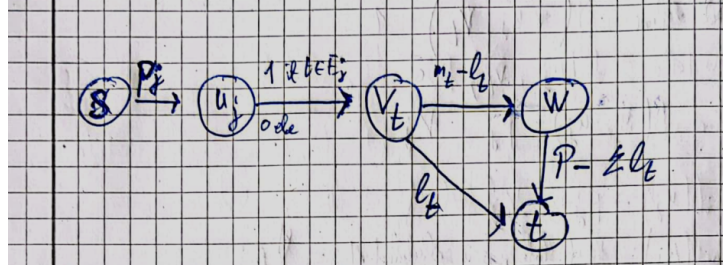 S p_j u_j 1 if t∈E_j V_t m_t-l_t W
0 else
l_t P- Σl_t
t